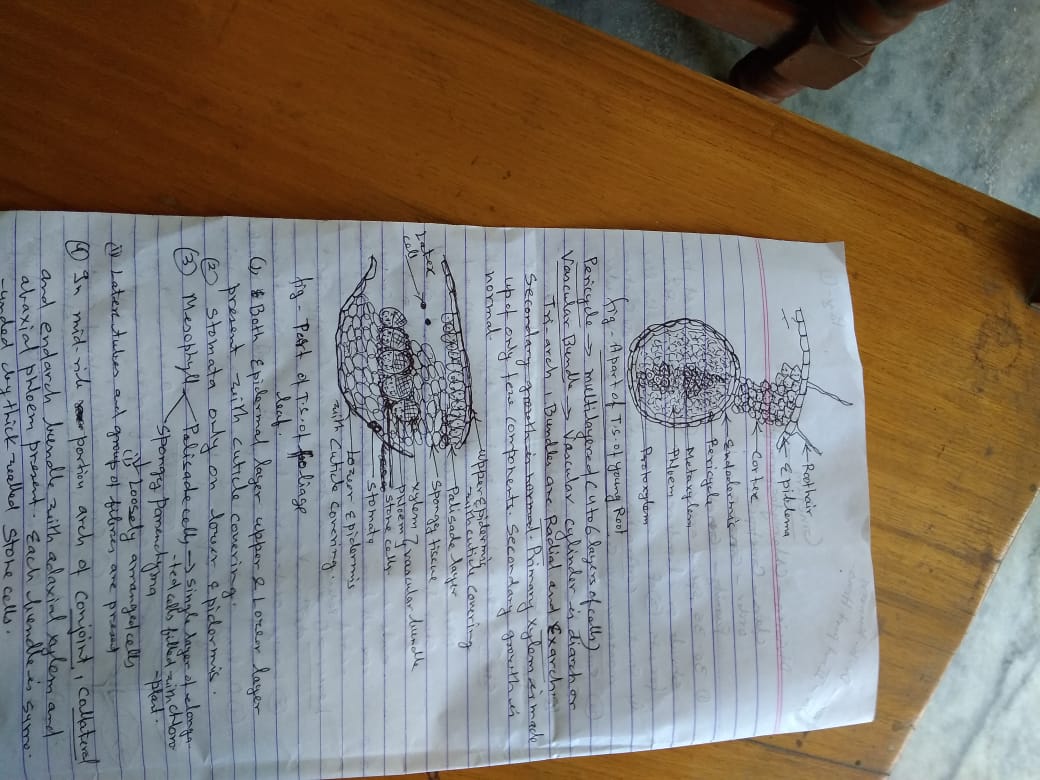 Roothair
Epiblema
Cortex
Endodermis
Pericycle
Metaxylem
Phloem
Protoxylem
fig - A part of T.s. of young Root
Pericycle → multilayered (4 to 6 layers of cells)
Vascular Bundle → Vascular cylinder is diarch or
Tri-arch, Bundles are Radial and Exarch.
Secondary growth is normal. Primary xylem is made
up of only few components. Secondary growth is
normal.
upper Epidermis
with cuticle covering
Palisade layer
spongy tissue
xylem
phloem } vascular bundle
stone cells.
Stomata
Lower Epidermis
with cuticle covering.
Latex
cell
fig - Part of T.s. of foliage
leaf.
(1) Both Epidermal layer upper & Lower layer
present with cuticle covering.
(2) Stomata only on lower epidermis.
(3) Mesophyll Palisade cells → single layer of elonga-
-ted cells filled with chloro
-plast.
Spongy Parenchyma
(i) Loosely arranged cells
(ii) Latex tubes and group of fibres are present
(4) In mid-rib portion arch of conjoint, collateral
and endarch bundle with adaxial xylem and
abaxial phloem present. Each bundle is surro-
-unded by thick walled stone cells.